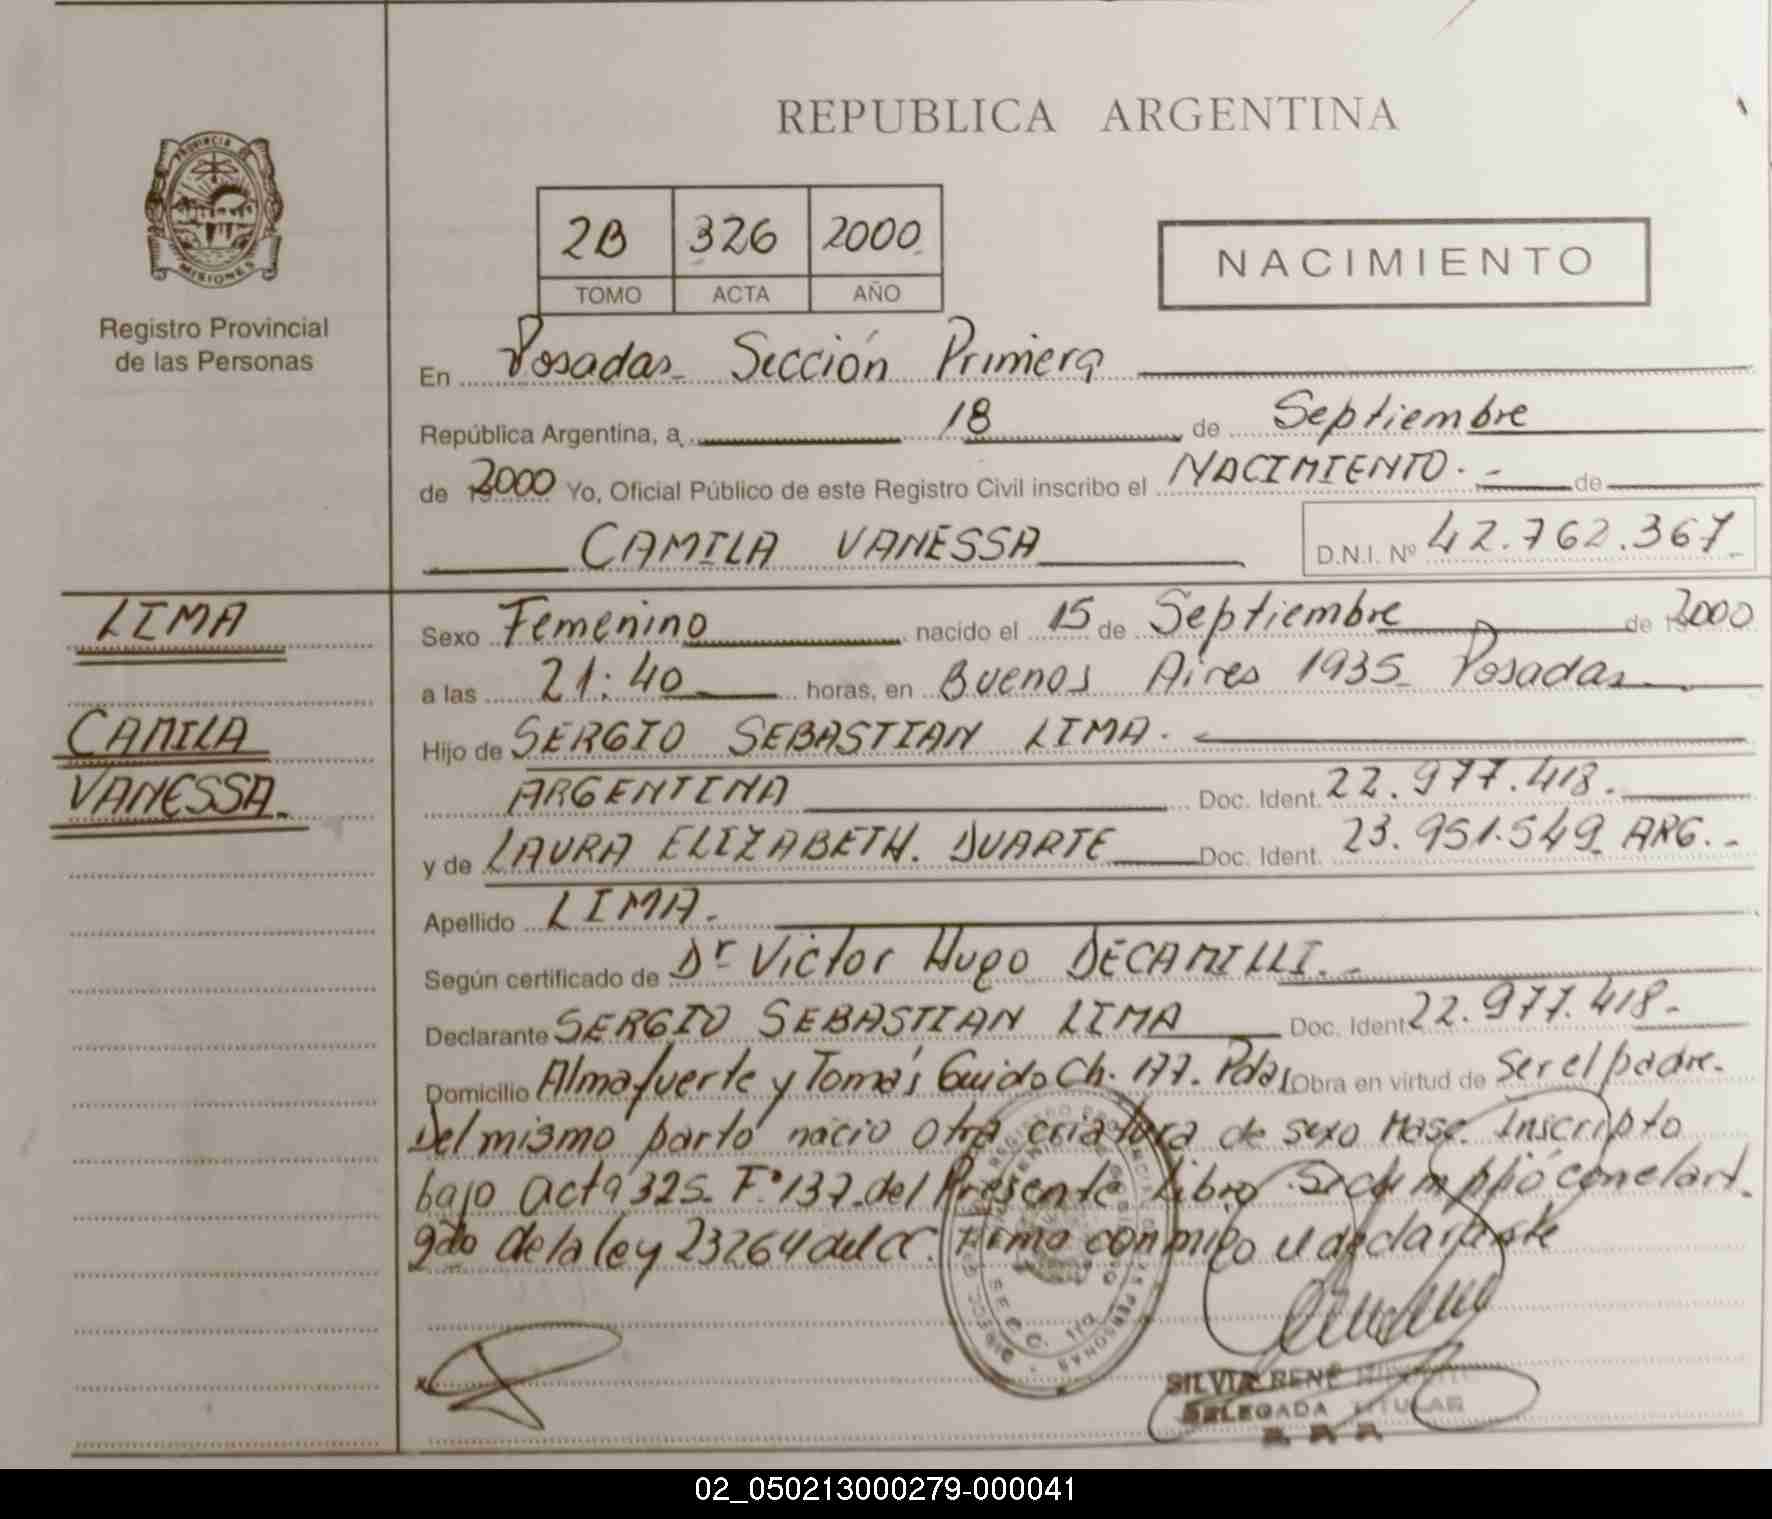 REPUBLICA ARGENTINA
PROVINCIA DE
MISIONES
Registro Provincial
de las Personas
2B 326 2000
TOMO ACTA AÑO
NACIMIENTO
En Posadas Sección Primera
República Argentina, a 18 de Septiembre
de 2000 Yo, Oficial Público de este Registro Civil inscribo el NACIMIENTO. - de
CAMILA VANESSA
D.N.I. Nº 42.762.367
LIMA
CAMILA
VANESSA.
Sexo Femenino nacido el 15 de Septiembre de 2000
a las 21:40 horas, en Buenos Aires 1935 Posadas
Hijo de SERGIO SEBASTIAN LIMA.
ARGENTINA Doc. Ident. 22.977.418.
y de LAURA ELIZABETH. DUARTE Doc. Ident. 23.951.549 ARG. -
Apellido LIMA.
Según certificado de Dr Victor Hugo DECAMILLI. -
Declarante SERGIO SEBASTIAN LIMA Doc. Ident 22.977.418-
Domicilio Almafuerte y Tomás Guido Ch. 177. Pdas Obra en virtud de Ser el padre.
Del mismo parto nacio otra criatura de sexo Masc. Inscripto
bajo acta 325. Fº 137. del Presente Libro. Se cumplió con el art.
de la ley 23264 del Firma conmigo el declarante
SILVIA RENÉ
DELEGADA TITULAR
02_050213000279-000041